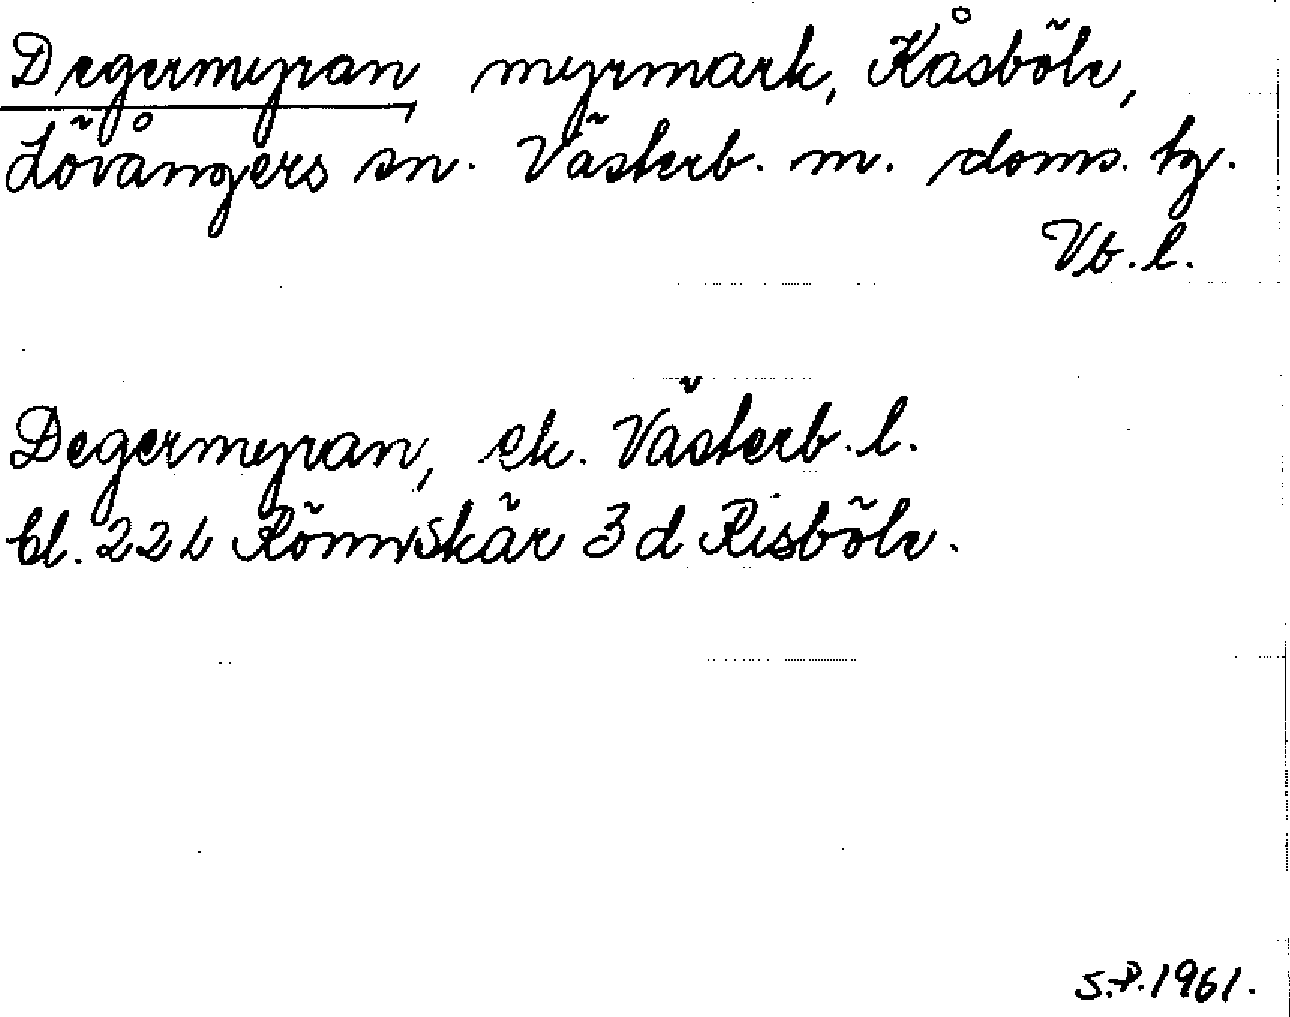 Degermyran myrmark, Kåsböle,
Lövångers sn. Västerb. m. doms. tg.
Vb. l.
Degermyran, ek. Västerb. l.
bl. 22 L Rönnskär 3 d Risböle.
S.P. 1961.